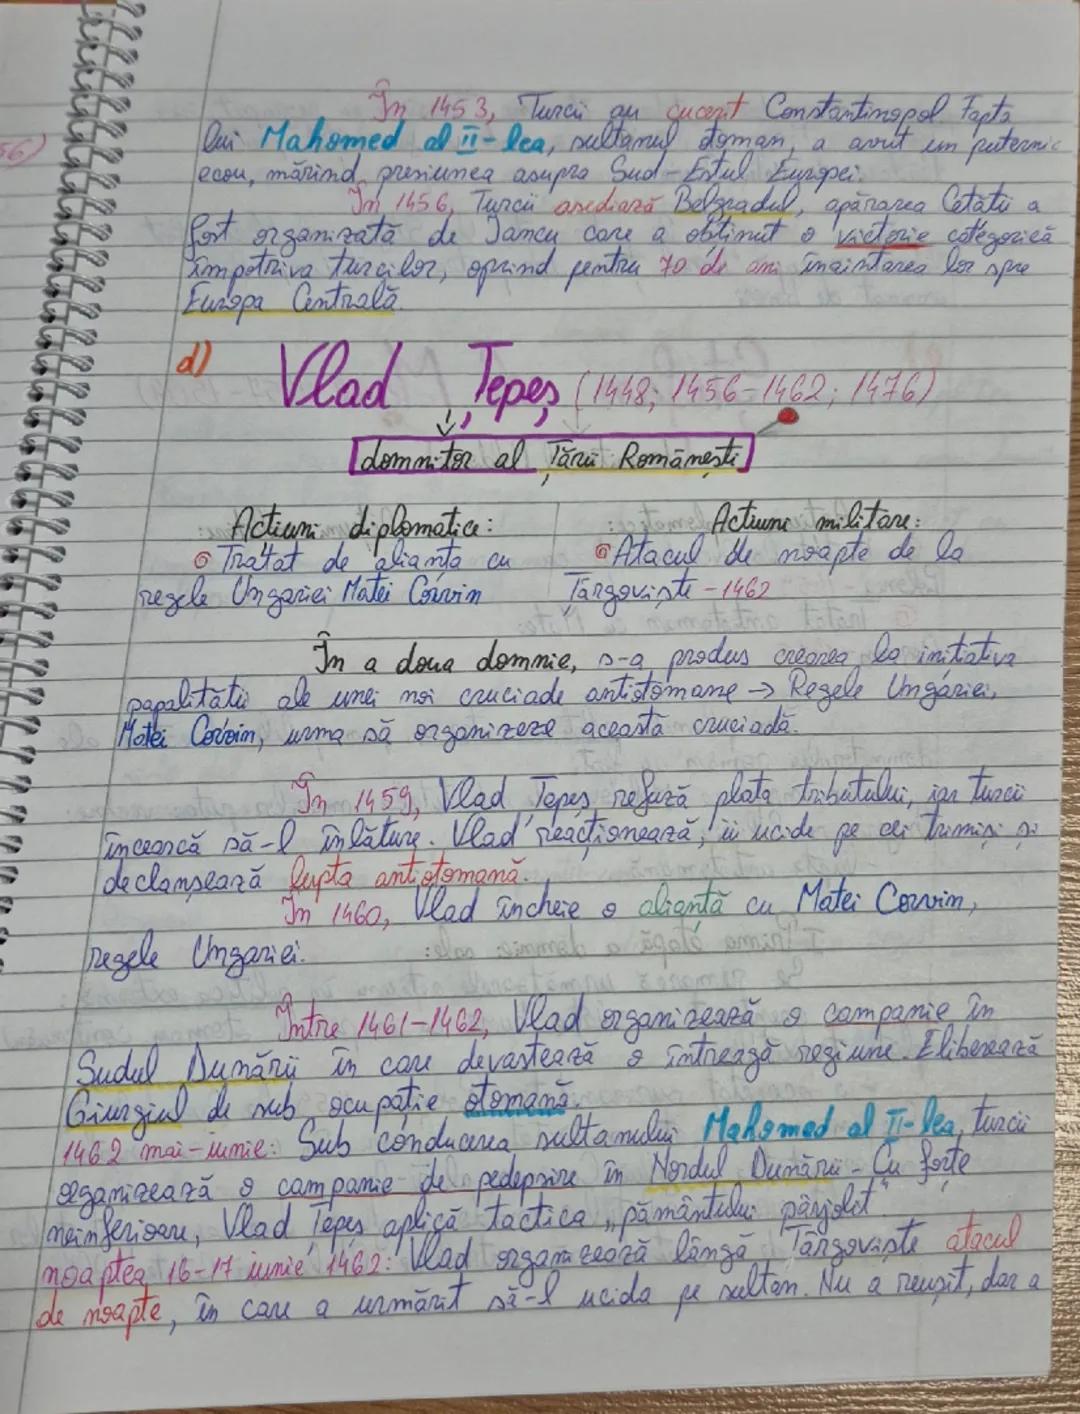 56)
În 1453, Turcii au cucerit Constantinopol Fapta
lui Mahomed al II-lea, sultanul otoman, a avut un puternic
ecou, mărind presiunea asupra Sud-Estul Europei.
În 1456, Turcii asediază Belgradul, apărarea Cetății a
fost organizată de Iancu care a obținut o victorie categorică
împotriva turcilor, oprind pentru 70 de ani înaintarea lor spre
Europa Centrală.
d) Vlad Țepeș (1448; 1456-1462; 1476)
domnitor al Țării Românești
Acțiuni diplomatice:
Tratat de alianța cu
regele Ungariei Matei Corvin
Acțiuni militare:
Atacul de noapte de la
Târgoviște - 1462
În a doua domnie, s-a produs crearea la inițiativa
papalității ale unei noi cruciade antiotomane → Regele Ungariei,
Matei Corvin, urma să organizeze această cruciadă.
În 1459, Vlad Țepeș refuză plata tributului, iar turcii
încearcă să-l înlăture. Vlad reacționează, îi ucide pe cei trimiși și
declanșează lupta antiotomană.
În 1460, Vlad încheie o alianță cu Matei Corvin,
regele Ungariei.
Între 1461-1462, Vlad organizează o campanie în
Sudul Dunării în care devastează o întreagă regiune. Eliberează
Giurgiul de sub ocupație otomană.
1462 mai-iunie: Sub conducerea sultanului Mahomed al II-lea, turcii
organizează o campanie de pedepsire în Nordul Dunării - Cu forțe
neinferioare, Vlad Țepeș aplică tactica „pământului pârjolit"
noaptea 16-17 iunie 1462: Vlad organizează lângă Târgoviște atacul
de noapte, în care a urmărit să-l ucida pe sultan. Nu a reușit, dar a